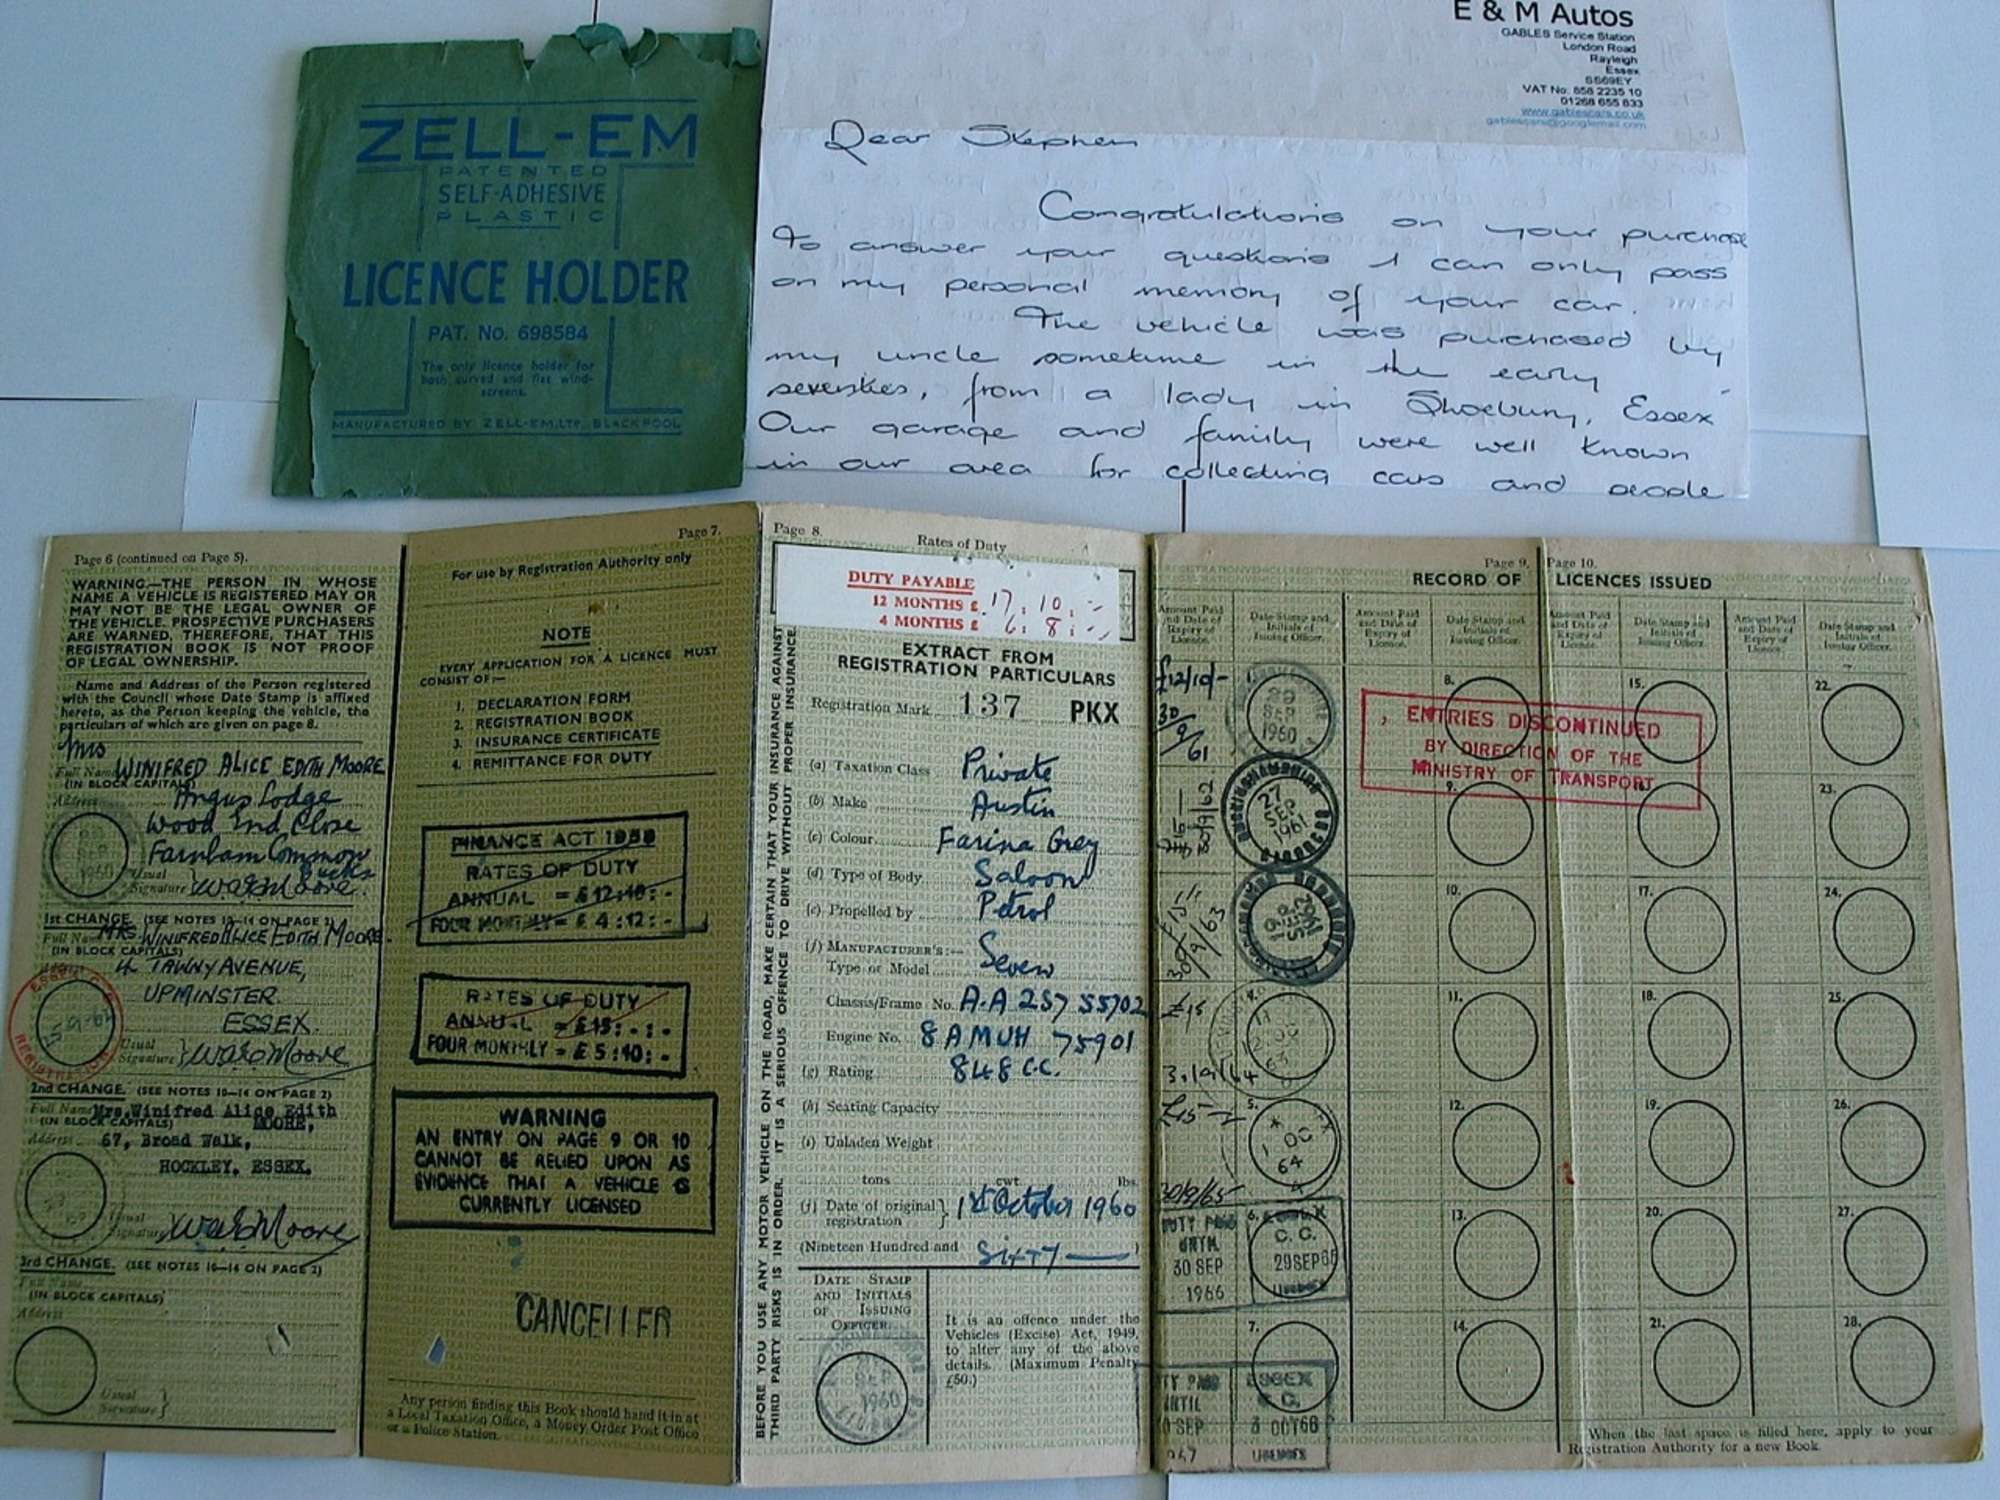 ZELL-EM
PATENTED
SELF-ADHESIVE
PLASTIC
LICENCE HOLDER
PAT. No. 698584
The only licence holder for
both curved and flat wind-
screens.
MANUFACTURED BY ZELL-EM, LTD., BLACKPOOL
E & M Autos
GABLES Service Station
London Road
Rayleigh
Essex
SS69EY
VAT No. 858 2235 10
01268 655 833
www.gablescars.co.uk
gablescars@googlemail.com
Dear Stephen
Congratulations on your purchase
To answer your questions I can only pass
on my personal memory of your car.
The vehicle was purchased by
my uncle sometime in the early
seventies, from a lady in Shoebury, Essex
Our garage and family were well known
in our area for collecting cars and people
Page 6 (continued on Page 5).
WARNING.—THE PERSON IN WHOSE
NAME A VEHICLE IS REGISTERED MAY OR
MAY NOT BE THE LEGAL OWNER OF
THE VEHICLE. PROSPECTIVE PURCHASERS
ARE WARNED, THEREFORE, THAT THIS
REGISTRATION BOOK IS NOT PROOF
OF LEGAL OWNERSHIP.
Name and Address of the Person registered
with the Council whose Date Stamp is affixed
hereto, as the Person keeping the vehicle, the
particulars of which are given on page 8.
Mrs
Full Name WINIFRED ALICE EDITH MOORE
(IN BLOCK CAPITALS)
Address Angus Lodge
Wood End Close
Farnham Common
Bucks
Usual Signature } W A E Moore.
1st CHANGE. (SEE NOTES 10-14 ON PAGE 2)
Full Name MRS. WINIFRED ALICE EDITH MOORE.
(IN BLOCK CAPITALS)
Address 4 TAWNY AVENUE,
UPMINSTER.
ESSEX.
Usual Signature } W A E Moore
2nd CHANGE. (SEE NOTES 10-14 ON PAGE 2)
Full Name Mrs. Winifred Alice Edith
(IN BLOCK CAPITALS) MOORE,
Address 67, Broad Walk,
HOCKLEY, ESSEX.
Usual Signature W A E Moore
3rd CHANGE. (SEE NOTES 10-14 ON PAGE 2)
Full Name
(IN BLOCK CAPITALS)
Address
Usual Signature }
Page 7.
For use by Registration Authority only
NOTE
EVERY APPLICATION FOR A LICENCE MUST
CONSIST OF:—
1. DECLARATION FORM
2. REGISTRATION BOOK
3. INSURANCE CERTIFICATE
4. REMITTANCE FOR DUTY
FINANCE ACT 1959
RATES OF DUTY
ANNUAL = £12:10:-
FOUR MONTHLY = £4:12:-
RATES OF DUTY
ANNUAL = £15:-:-
FOUR MONTHLY = £5:10:-
WARNING
AN ENTRY ON PAGE 9 OR 10
CANNOT BE RELIED UPON AS
EVIDENCE THAT A VEHICLE IS
CURRENTLY LICENSED
CANCELLED
Any person finding this Book should hand it in at
a Local Taxation Office, a Money Order Post Office
or a Police Station.
Page 8.
Rates of Duty
DUTY PAYABLE
12 MONTHS £ 17: 10: -
4 MONTHS £ 6: 8: -
EXTRACT FROM
REGISTRATION PARTICULARS
Registration Mark 137 PKX
(a) Taxation Class Private
(b) Make Austin
(c) Colour Farina Grey
(d) Type of Body Saloon
(e) Propelled by Petrol
(f) MANUFACTURER'S:—
Type or Model Seven
Chassis/Frame No. A.A 2S7 55702
Engine No. 8 AMUH 75901
(g) Rating 848 C.C.
(h) Seating Capacity
(i) Unladen Weight
tons cwt. lbs.
(j) Date of original registration } 1st October 1960
(Nineteen Hundred and Sixty )
DATE STAMP
AND INITIALS
OF ISSUING
OFFICER.
SEP
1960
It is an offence under the
Vehicles (Excise) Act, 1949,
to alter any of the above
details. (Maximum Penalty
£50.)
BEFORE YOU USE ANY MOTOR VEHICLE ON THE ROAD, MAKE CERTAIN THAT YOUR INSURANCE AGAINST
THIRD PARTY RISKS IS IN ORDER. IT IS A SERIOUS OFFENCE TO DRIVE WITHOUT PROPER INSURANCE.
Page 9. Page 10.
RECORD OF LICENCES ISSUED
Amount Paid and Date of Expiry of Licence.
Date Stamp and Initials of Issuing Officer.
Amount Paid and Date of Expiry of Licence.
Date Stamp and Initials of Issuing Officer.
Amount Paid and Date of Expiry of Licence.
Date Stamp and Initials of Issuing Officer.
Amount Paid and Date of Expiry of Licence.
Date Stamp and Initials of Issuing Officer.
£12/10/-
30/9/61
1.
SEP
1960
30/9/62
BUCKINGHAMSHIRE
27
SEP
1961
30/9/63
£15
4.
63
£15
5.
1 OC
64
30/9/65
DUTY PAID
UNTIL
30 SEP
1966
6. ESSEX
C. C.
29 SEP 65
LICENCES
7.
ESSEX
C. C.
3 OCT 66
LICENCES
ENTRIES DISCONTINUED
BY DIRECTION OF THE
MINISTRY OF TRANSPORT
8.
9.
10.
11.
12.
13.
14.
15.
16.
17.
18.
19.
20.
21.
22.
23.
24.
25.
26.
27.
28.
When the last space is filled here, apply to your
Registration Authority for a new Book.